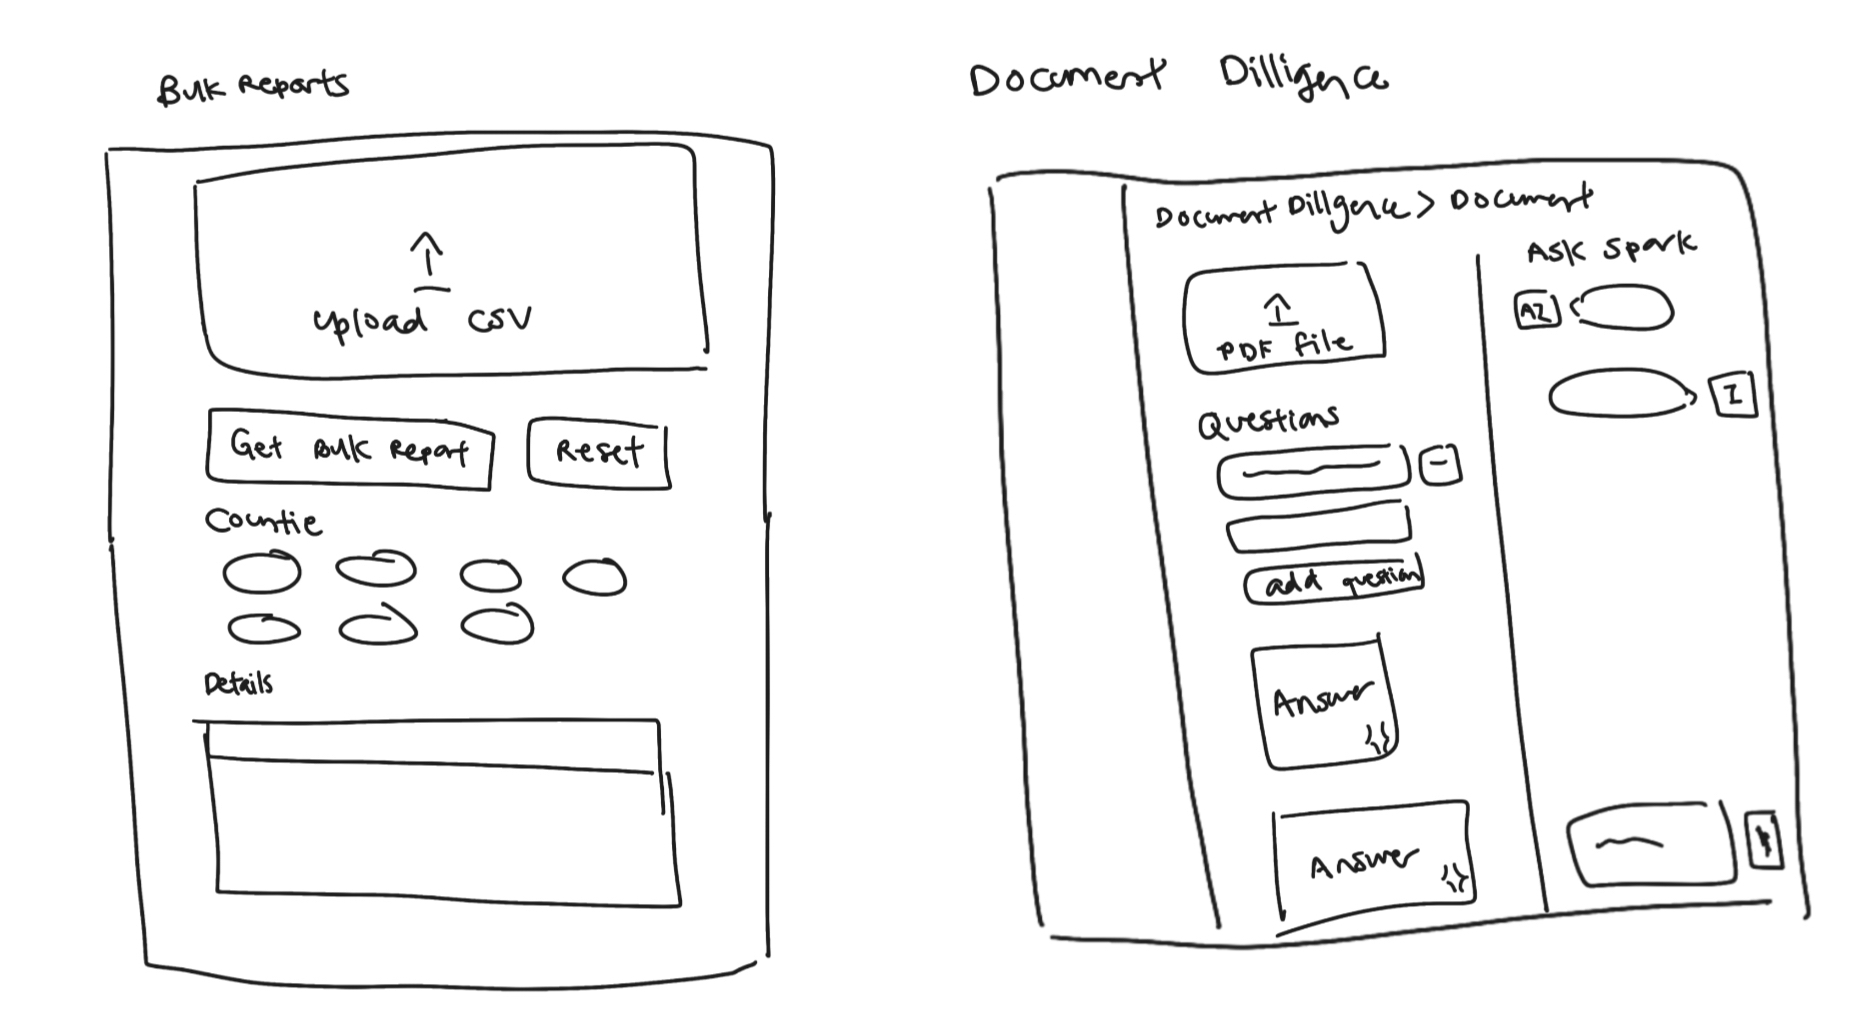 Bulk Reports
upload CSV
Get Bulk Report
Reset
Countie
Details
Document Dilligence
Document Dillgence > Document
PDF file
Questions
add question
Answer
Answer
Ask Spark
AI
I